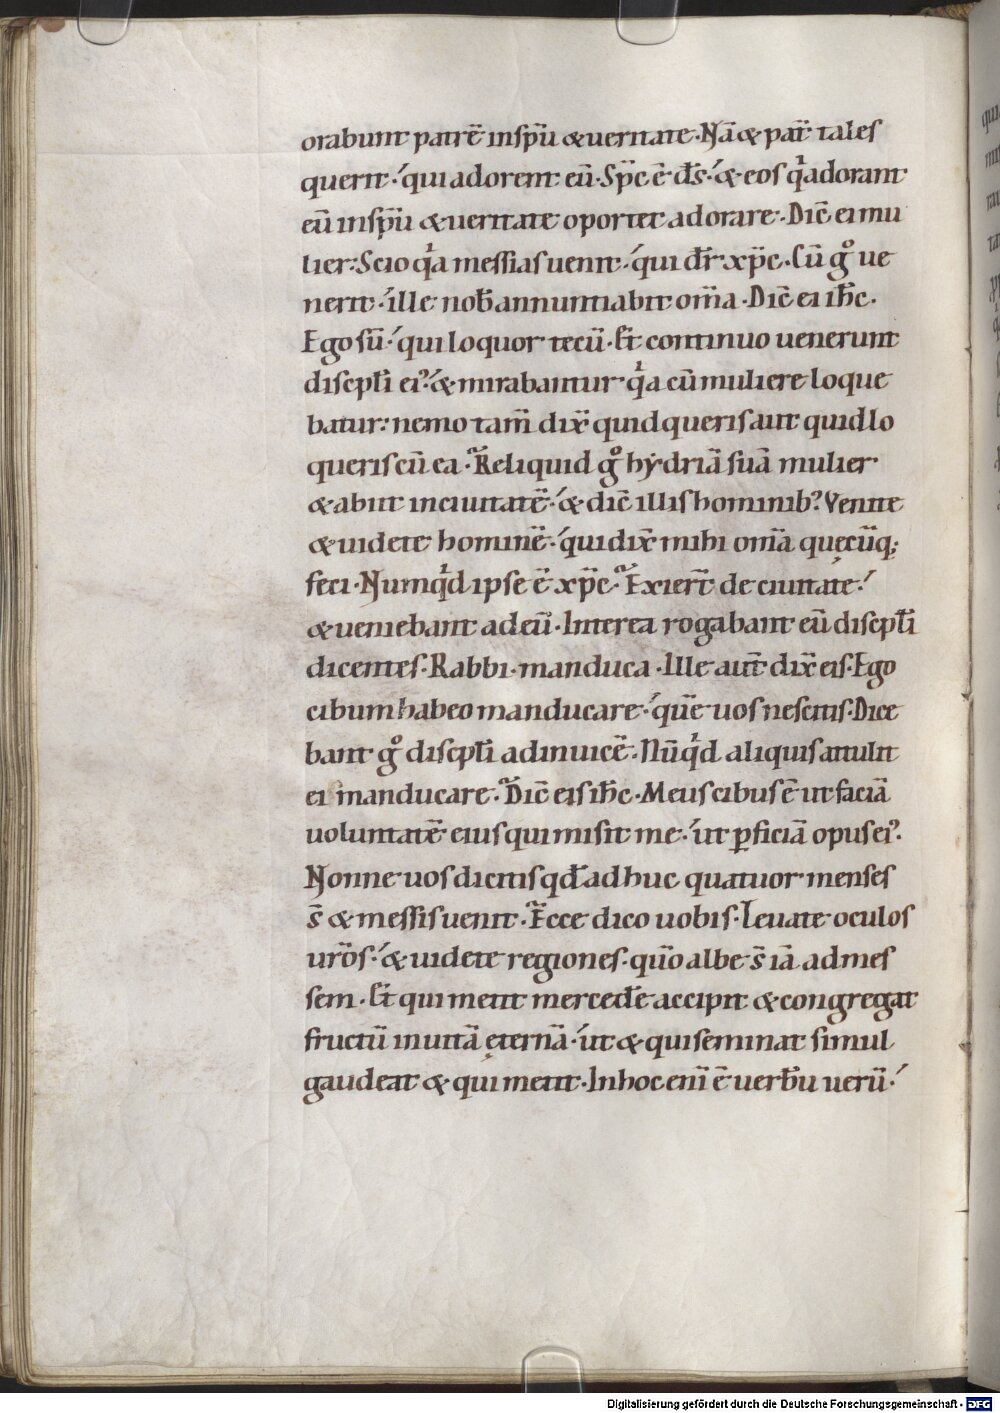 orabunt patrē inspū &ueritate. Nā & pat̄ tales
querit. qui adorent eū. Sp̄c ē d̄s. & eos qͥadorant
eū inspū &ueritate oportet adorare. Dic̄ ei mu
lier: Scio qͥa messias uenit. qui dr̄ xp̄c. Cū gͦ ue
nerit. ille nob̄ annuntiabit om̄a. Dic̄ ei ih̄c.
Ego sū. qui loquor tecū. Et continuo uenerunt
discipl̄i ei᾿. & mirabantur qͥa cū muliere loque
batur. nemo tam̄ dix̄ quid queris aut quid lo
queris cū ea. Reliquid gͦ hẏdriā suā mulier
& abiit inciuitatē. & dic̄ illis hominib᾿. Venite
& uidete hominē. qui dix̄ mihi om̄a quęcūq;
feci. Numqͥd ipse ē xp̄c. Exier̄t de ciuitate.
&ueniebant adeū. Interea rogabant eū discpl̄i
dicentes. Rabbi. manduca. Ille aut̄ dix̄ eis. Ego
cibum habeo manducare. quē uos nescitis. Dice
bant gͦ discpl̄i adinuicē. Nūqͥd aliquis attulit
ei manducare. Dic̄ eis ih̄c. Meus cibus ē ut faciā
uoluntatē eius qui misit me. ut ꝑficiā opus ei᾿.
Nonne uos dicitis qd̄ adhuc quatuor menses
s̄ & messis uenit. Ecce dico uobis. Leuate oculos
ur̄os. & uidete regiones. qūo albe s̄ iā ad mes
sem. Et qui metit mercedē accipit & congregat
fructū inuitā ęternā. ut & qui seminat simul
gaudeat & qui metit. Inhoc eni ē uerb̄u uerū.
Digitalisierung gefördert durch die Deutsche Forschungsgemeinschaft - DFG